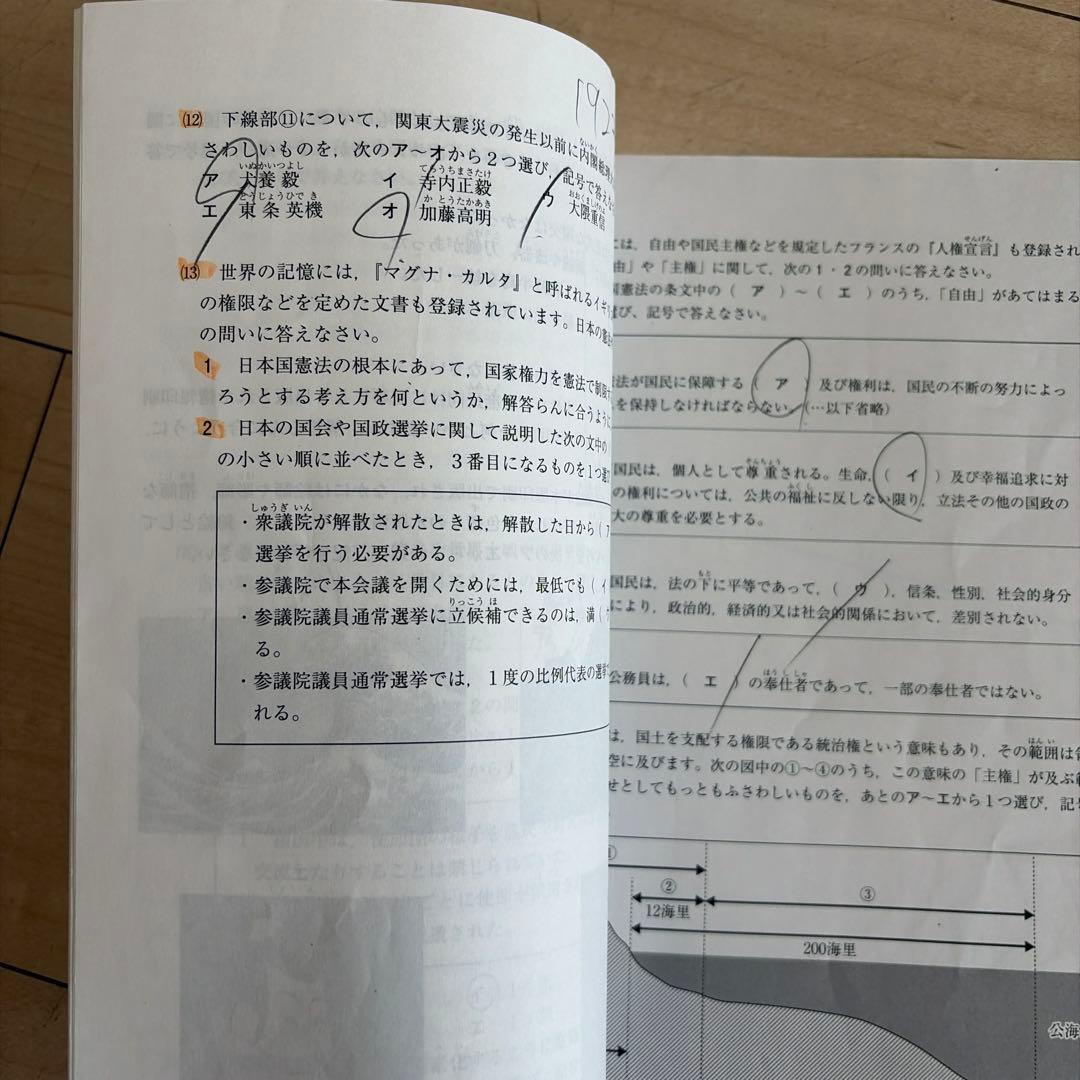 192
(12) 下線部⑪について，関東大震災の発生以前に内閣総
さわしいものを，次のア～オから2つ選び，記号で答え
ア 犬養毅 イ 寺内正毅 ウ 大隈重信
エ 東条英機 オ 加藤高明
(13) 世界の記憶には，『マグナ・カルタ』と呼ばれるイギ
の権限などを定めた文書も登録されています。日本の憲
の問いに答えなさい。
1 日本国憲法の根本にあって，国家権力を憲法で制限
ろうとする考え方を何というか，解答らんに合うように
2 日本の国会や国政選挙に関して説明した次の文中の
の小さい順に並べたとき，3番目になるものを1つ選
・衆議院が解散されたときは，解散した日から（ア
選挙を行う必要がある。
・参議院で本会議を開くためには，最低でも（イ
・参議院議員通常選挙に立候補できるのは，満（
る。
・参議院議員通常選挙では，1度の比例代表の選挙
れる。
には，自由や国民主権などを規定したフランスの『人権宣言』も登録され
由」や「主権」に関して，次の1・2の問いに答えなさい。
国憲法の条文中の（ ア ）～（ エ ）のうち，「自由」があてはまる
び，記号で答えなさい。
法が国民に保障する（ ア ）及び権利は，国民の不断の努力によっ
を保持しなければならない。（…以下省略）
国民は，個人として尊重される。生命，（ イ ）及び幸福追求に対
の権利については，公共の福祉に反しない限り，立法その他の国政の
大の尊重を必要とする。
国民は，法の下に平等であって，（ ウ ），信条，性別，社会的身分
により，政治的，経済的又は社会的関係において，差別されない。
公務員は，（ エ ）の奉仕者であって，一部の奉仕者ではない。
は，国土を支配する権限である統治権という意味もあり，その範囲は
空に及びます。次の図中の①～④のうち，この意味の「主権」が及ぶ
せとしてもっともふさわしいものを，あとのア～エから1つ選び，記
② ③
12海里
200海里
公海